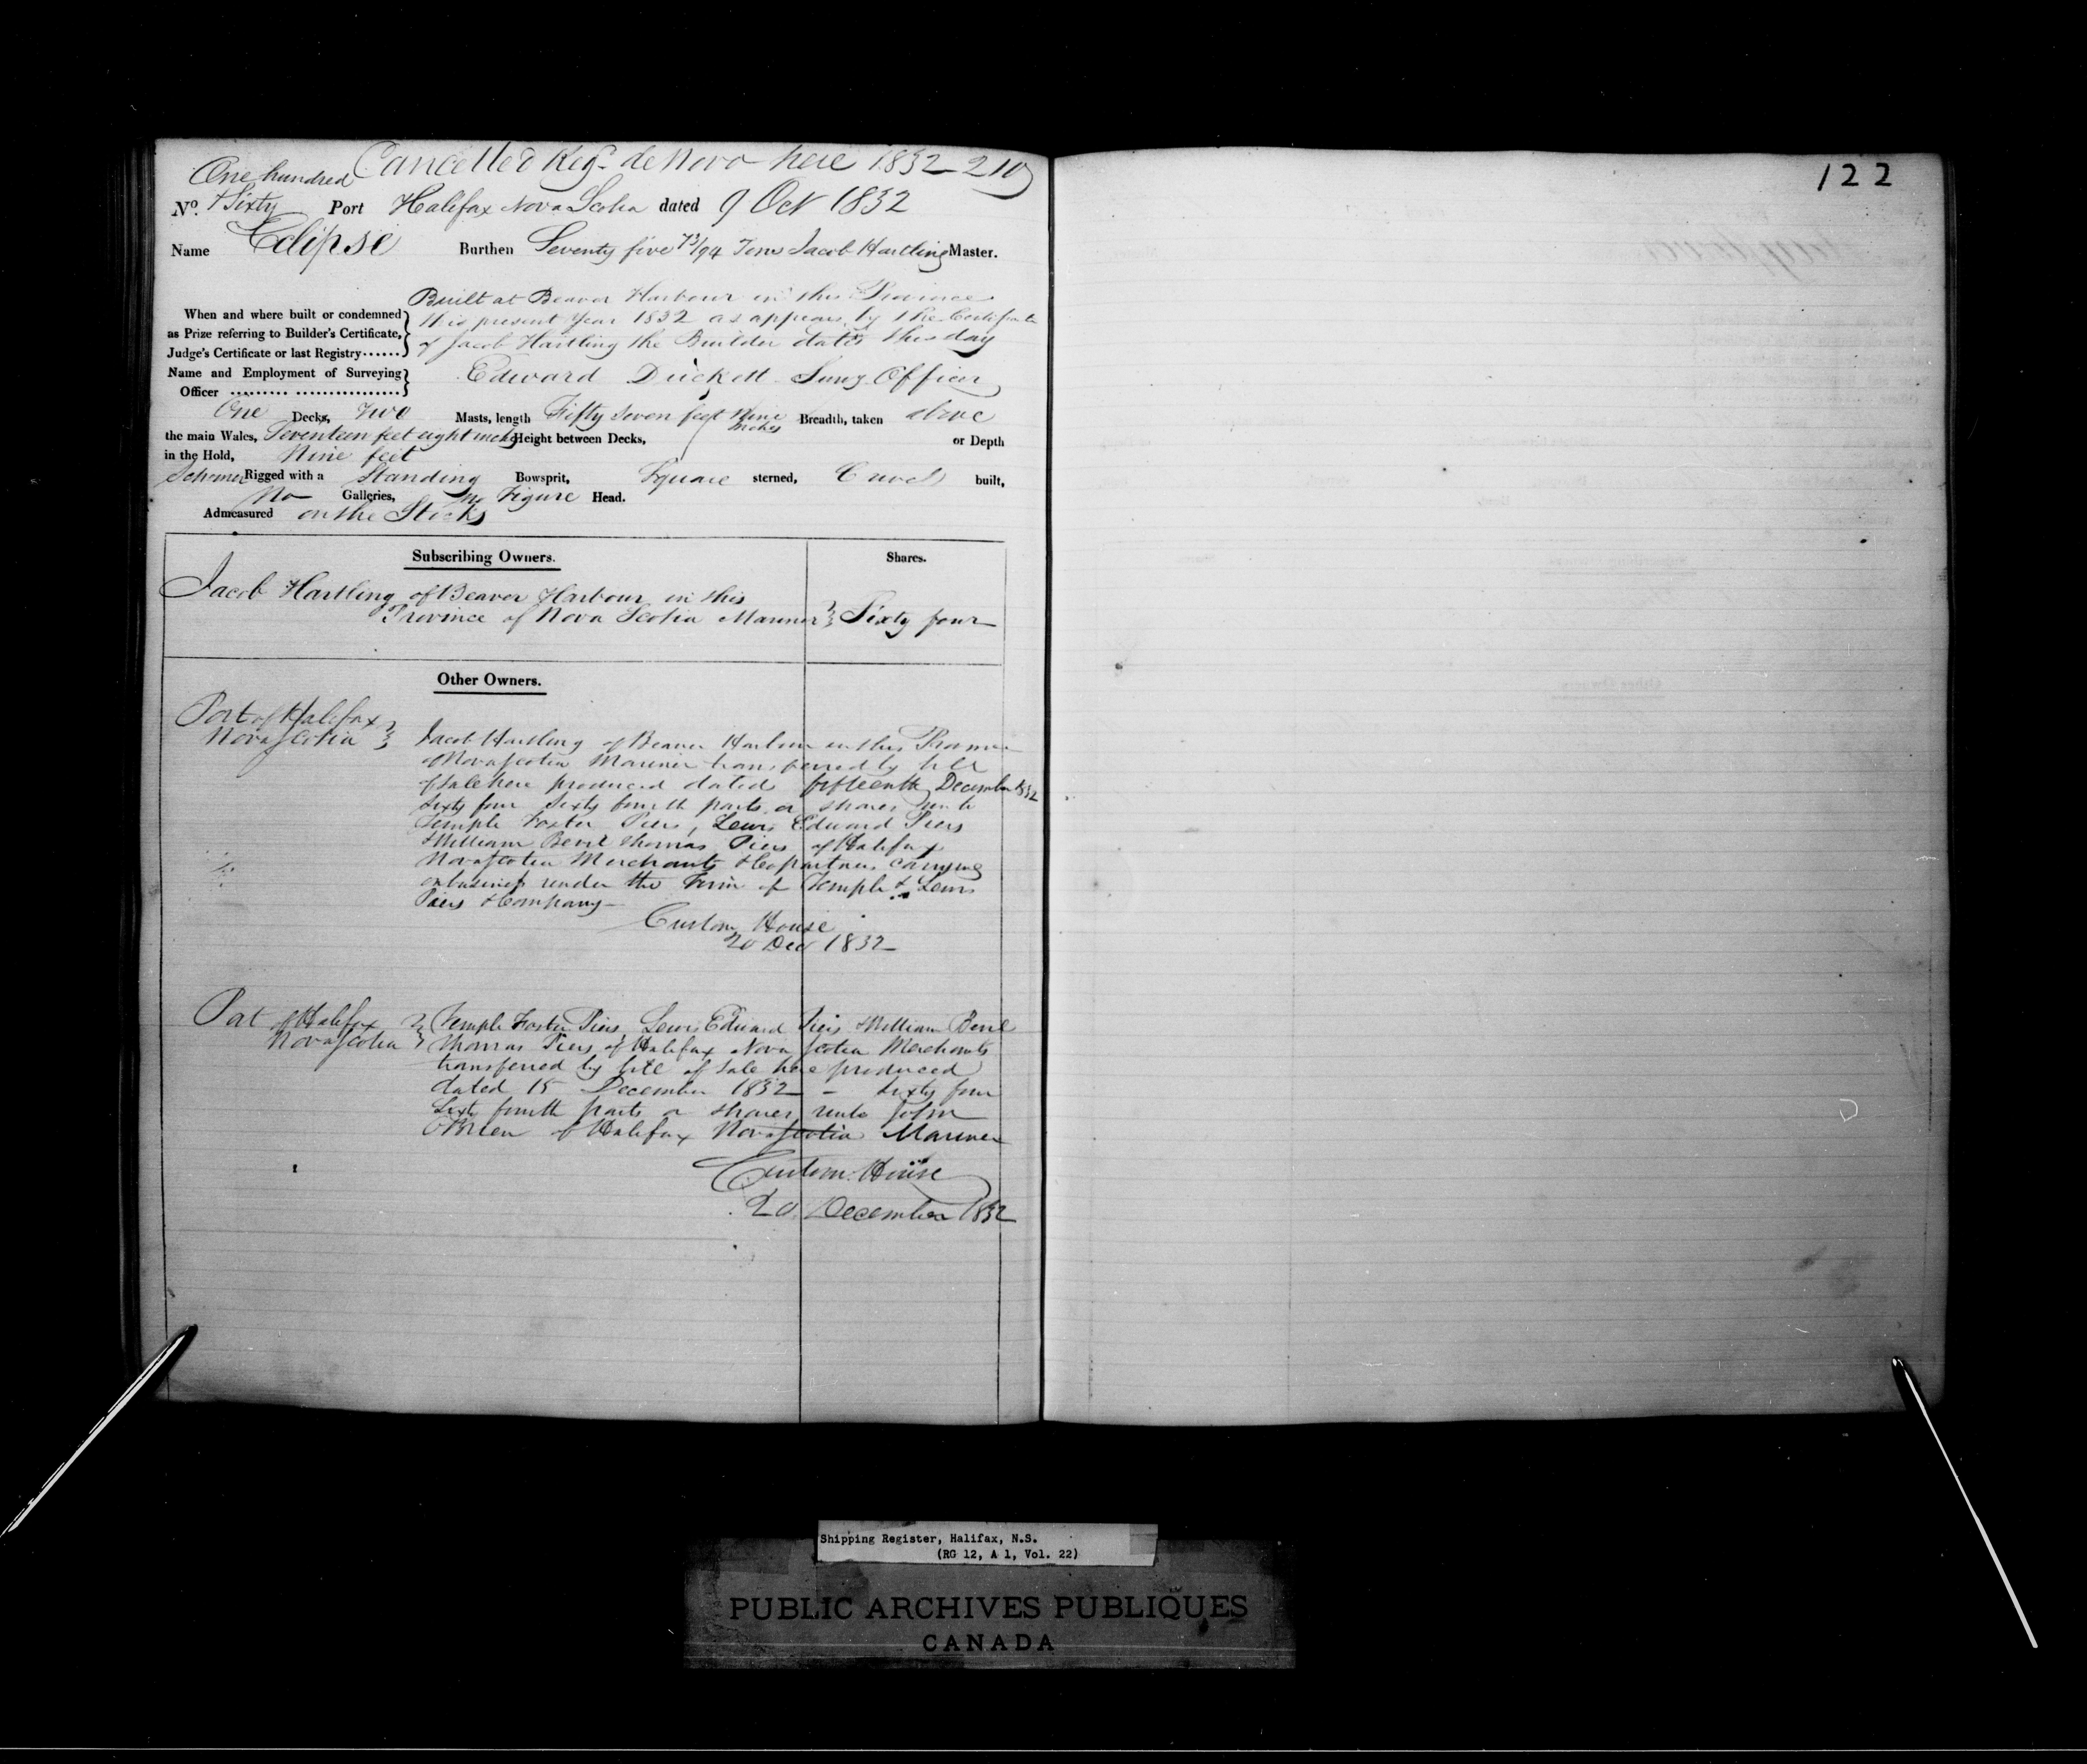 Cancelled Reg. de Novo here 1832-210
122
One hundred
No. & Sixty Port Halifax Nova Scotia dated 9 Oct 1832
Name Eclipse Burthen Seventy five 73/94 Tons Jacob Hartling Master.
Built at Beaver Harbour in this Province
When and where built or condemned this present Year 1832 as appears by the Certificate
as Prize referring to Builder's Certificate, of Jacob Hartling the Builder dated this day
Judge's Certificate or last Registry......
Name and Employment of Surveying Edward Duckett Survg Officer
Officer ......... ................
One Decks, Two Masts, length Fifty seven feet Nine inches Breadth, taken above
the main Wales, Seventeen feet eight inches Height between Decks, or Depth
in the Hold, Nine feet
Schooner Rigged with a Standing Bowsprit, Square sterned, Carvel built,
No Galleries, no Figure Head.
Admeasured on the Stocks
Subscribing Owners. Shares.
Jacob Hartling of Beaver Harbour in this
Province of Nova Scotia Mariner Sixty four
Other Owners.
Port of Halifax
Nova Scotia Jacob Hartling of Beaver Harbour in this Province
of Nova Scotia Mariner transferred by bill
of sale here produced dated fifteenth December 1832
Sixty four Sixty fourth parts or shares unto
Temple Foster Piers, Lewis Edward Piers
& William Bevil Thomas Piers of Halifax
Nova Scotia Merchants & Copartners carrying
on business under the Firm of Temple & Lewis
Piers & Company
Custom House
20 Dec 1832
Port of Halifax Temple Foster Piers, Lewis Edward Piers & William Bevil
Nova Scotia Thomas Piers of Halifax Nova Scotia Merchants
transferred by bill of sale here produced
dated 15 December 1832 - Sixty four
Sixty fourth parts or shares unto John
OBrien of Halifax Nova Scotia Mariner
Custom House
20 December 1832
Shipping Register, Halifax, N.S.
(RG 12, A 1, Vol. 22)
PUBLIC ARCHIVES PUBLIQUES
CANADA